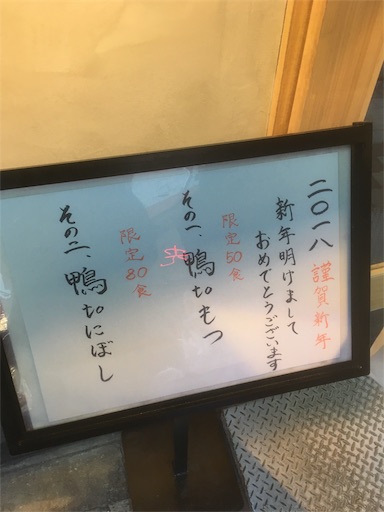 二〇一八 謹賀新年
新年明けまして
おめでとうございます
限定50食
その一、鴨toもつ
限定80食
その二、鴨toにぼし